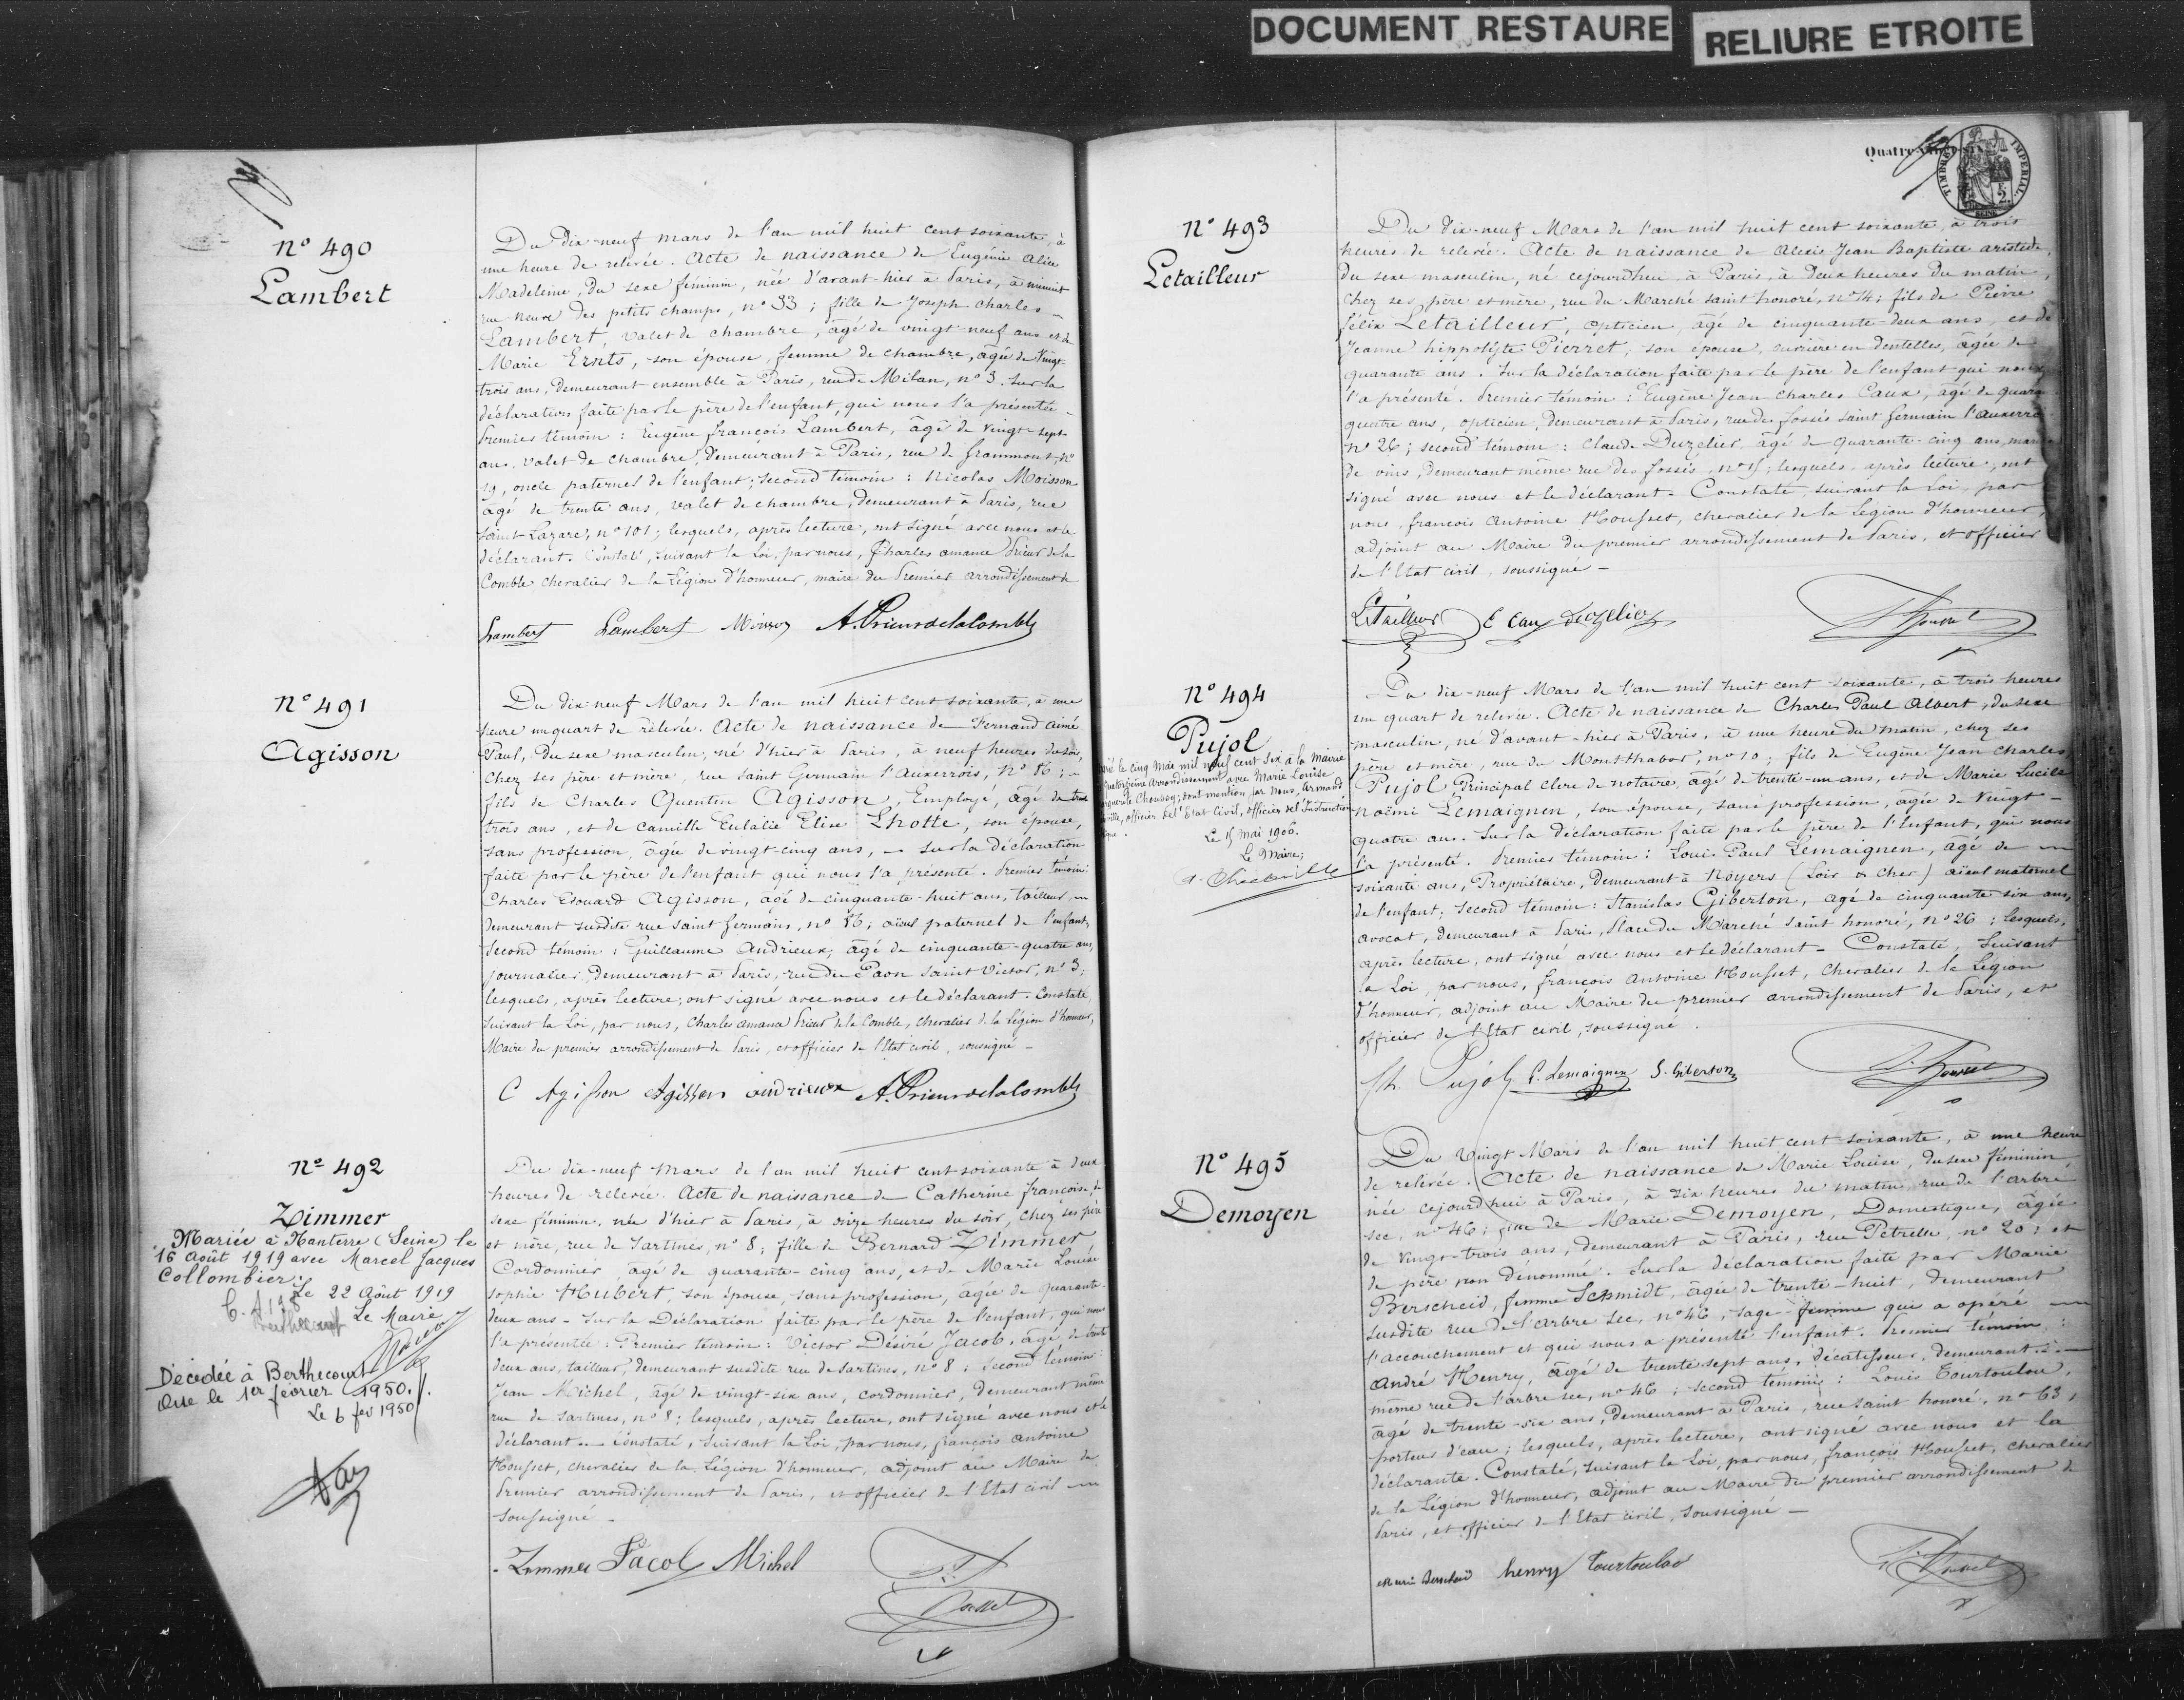 DOCUMENT RESTAURE
RELIURE ETROITE
N° 490
Lambert
Du dix-neuf mars de l'an mil huit cent soixante, à
une heure de relevée. Acte de naissance de Eugénie Alice
Madeleine, du sexe féminin, née d'avant-hier à Paris, à minuit
rue neuve des petits champs, n° 33 ; fille de Joseph Charles
Lambert, valet de chambre, âgé de vingt-neuf ans et de
Marie Ernts, son épouse, femme de chambre, âgée de vingt-
trois ans, demeurant ensemble à Paris, rue de Milan, n° 3. Sur la
déclaration faite par le père de l'enfant, qui nous l'a présentée
Premier témoin : Eugène françois Lambert, âgé de vingt-sept
ans, valet de chambre, demeurant à Paris, rue de Grammont, n°
19, oncle paternel de l'enfant ; second témoin : Nicolas Moisson
âgé de trente ans, valet de chambre, demeurant à Paris, rue
Saint Lazare, n° 101 ; lesquels, après lecture, ont signé avec nous et le
déclarant. Constaté, suivant la Loi, par nous, Charles amance Prieur de la
Comble chevalier de la Légion d'honneur, maire du Premier arrondissement de
Lambert Lambert Moisson A. Prieur de la Comble
N° 491
Agisson
Du dix-neuf Mars de l'an mil huit cent soixante, à une
heure un quart de relevée. Acte de naissance de Fernand aimé
Paul, du sexe masculin, né d'hier à Paris, à neuf heures du soir,
chez ses père et mère, rue Saint Germain l'Auxerrois, n° 86 ;
fils de Charles Quentin Agisson, Employé, âgé de trente
trois ans, et de Camille Eulalie Elise Lhotte, son épouse,
sans profession, âgée de vingt-cinq ans, - Sur la déclaration
faite par le père de l'enfant qui nous l'a présenté. Premier témoin :
Charles Edouard Agisson, âgé de cinquante-huit ans, tailleur
demeurant susdite rue Saint Germain, n° 86 ; aïeul paternel de l'enfant,
Second témoin : Guillaume Andrieux, âgé de cinquante-quatre ans,
journalier, demeurant à Paris, rue du Paon Saint Victor, n° 3 ;
lesquels, après lecture, ont signé avec nous et le déclarant. Constaté,
suivant la Loi, par nous, Charles amance Prieur de la Comble, chevalier de la Légion d'honneur,
Maire du premier arrondissement de Paris, et officier de l'Etat civil, soussigné -
C Agisson Agisson andrieux A. Prieur de la Comble
N° 492
Zimmer
Mariée à Nanterre (Seine) le
16 Août 1919 avec Marcel Jacques
Collombier.
Le 22 Août 1919
Le Maire
Décédée à Berthecourt
Oise le 1er février 1950.
Le 6 fév 1950
Du dix-neuf Mars de l'an mil huit cent soixante à deux
heures de relevée. Acte de naissance de Catherine françoise, du
sexe féminin, née d'hier à Paris, à onze heures du soir, chez ses père
et mère, rue de Sartines, n° 8 ; fille de Bernard Zimmer
Cordonnier, âgé de quarante-cinq ans, et de Marie Louise
Sophie Hubert, son épouse, sans profession, âgée de quarante-
deux ans - Sur la Déclaration faite par le père de l'enfant, qui nous
l'a présentée. Premier témoin : Victor Désiré Jacob, âgé de trente
deux ans, tailleur, demeurant susdite rue de Sartines, n° 8 ; second témoin :
Jean Michel, âgé de vingt-six ans, cordonnier, demeurant même
rue de Sartines, n° 8 ; lesquels, après lecture, ont signé avec nous et le
déclarant - Constaté, suivant la Loi, par nous, françois Antoine
Housset, chevalier de la Légion d'honneur, adjoint au Maire du
Premier arrondissement de Paris, et officier de l'Etat civil
soussigné -
Zimmer Jacob Michel
Quatre-vingt-six
TIMBRE IMPERIAL
SEINE
N° 493
Letailleur
Du dix-neuf Mars de l'an mil huit cent soixante, à trois
heures de relevée. Acte de naissance de Alexis Jean Baptiste aristide,
du sexe masculin, né cejourd'hui à Paris, à deux heures du matin,
chez ses père et mère, rue du Marché Saint honoré, n° 14 ; fils de Pierre
félix Letailleur, opticien, âgé de cinquante-deux ans, et de
Jeanne hippolyte Pierret, son épouse, ouvrière en dentelles, âgée de
quarante ans. Sur la déclaration faite par le père de l'enfant qui nous
l'a présenté. Premier témoin : Eugène Jean Charles Caux, âgé de quara
quatre ans, opticien, demeurant à Paris, rue des fossés Saint Germain l'auxerro
n° 26 ; second témoin : Claude Duzelier, âgé de quarante-cinq ans, mar
de vins, demeurant même rue des fossés, n° 15 ; lesquels, après lecture, ont
signé avec nous et le déclarant - Constaté, suivant la Loi, par
nous, françois Antoine Housset, chevalier de la Légion d'honneur,
adjoint au Maire du premier arrondissement de Paris, et officier
de l'Etat civil, soussigné -
Letailleur E Caux Duzelier
N° 494
Pujol
le cinq Mai mil neuf cent six à la Mairie
quatorzième arrondissement avec Marie Louise
dont mention par Nous, Armand
officier de l'Etat Civil, Officier de l'Instruction
Le 15 Mai 1906.
Le Maire,
Du dix-neuf Mars de l'an mil huit cent soixante, à trois heures
un quart de relevée. Acte de naissance de Charles Paul Albert, du sexe
masculin, né d'avant-hier à Paris, à une heure du matin, chez ses
père et mère, rue du Mont-thabor, n° 10 ; fils de Eugène Jean Charles
Pujol, Principal clerc de notaire, âgé de trente-un ans, et de Marie Lucile
Noémi Lemaignen, son épouse, sans profession, âgée de Vingt-
quatre ans. Sur la déclaration faite par le père de l'Enfant, qui nous
l'a présenté. Premier témoin : Louis Paul Lemaignen, âgé de
soixante ans, Propriétaire, demeurant à Noyers (Loir & Cher) aïeul maternel
de l'enfant ; Second témoin : Stanislas Giberton, âgé de cinquante six ans,
avocat, demeurant à Paris, Place du Marché Saint honoré, n° 26 ; lesquels,
après lecture, ont signé avec nous et le déclarant - Constaté, suivant
la Loi, par nous, françois Antoine Housset, Chevalier de la Légion
d'honneur, adjoint au Maire du premier arrondissement de Paris, et
officier de l'Etat civil, soussigné.
Ch. Pujol P. Lemaignen S. Giberton
N° 495
Demoyen
Du Vingt Mars de l'an mil huit cent soixante, à une heure
de relevée. Acte de naissance de Marie Louise, du sexe féminin
née cejourd'hui à Paris, à six heures du matin, rue de l'arbre
sec, n° 46 ; fille de Marie Demoyen, Domestique, âgée
de vingt-trois ans, demeurant à Paris, rue Pétrelle, n° 20 ; et
de père non dénommé. Sur la déclaration faite par Marie
Berscheid, femme Schmidt, âgée de trente-huit, demeurant
susdite rue de l'arbre sec, n° 46, sage-femme qui a opéré
l'accouchement et qui nous a présenté l'enfant. Premier témoin :
André Henry, âgé de trente sept ans, décatisseur, demeurant
même rue de l'arbre sec, n° 46 ; second témoin : Louis Tourtoulou,
âgé de trente-six ans, demeurant à Paris, rue Saint honoré, n° 63,
porteur d'eau ; lesquels, après lecture, ont signé avec nous et la
déclarante. Constaté, suivant la Loi, par nous, françois Housset, chevalier
de la Légion d'honneur, adjoint au Maire du premier arrondissement de
Paris, et officier de l'Etat civil, soussigné -
Marie Berscheid henry Tourtoulou